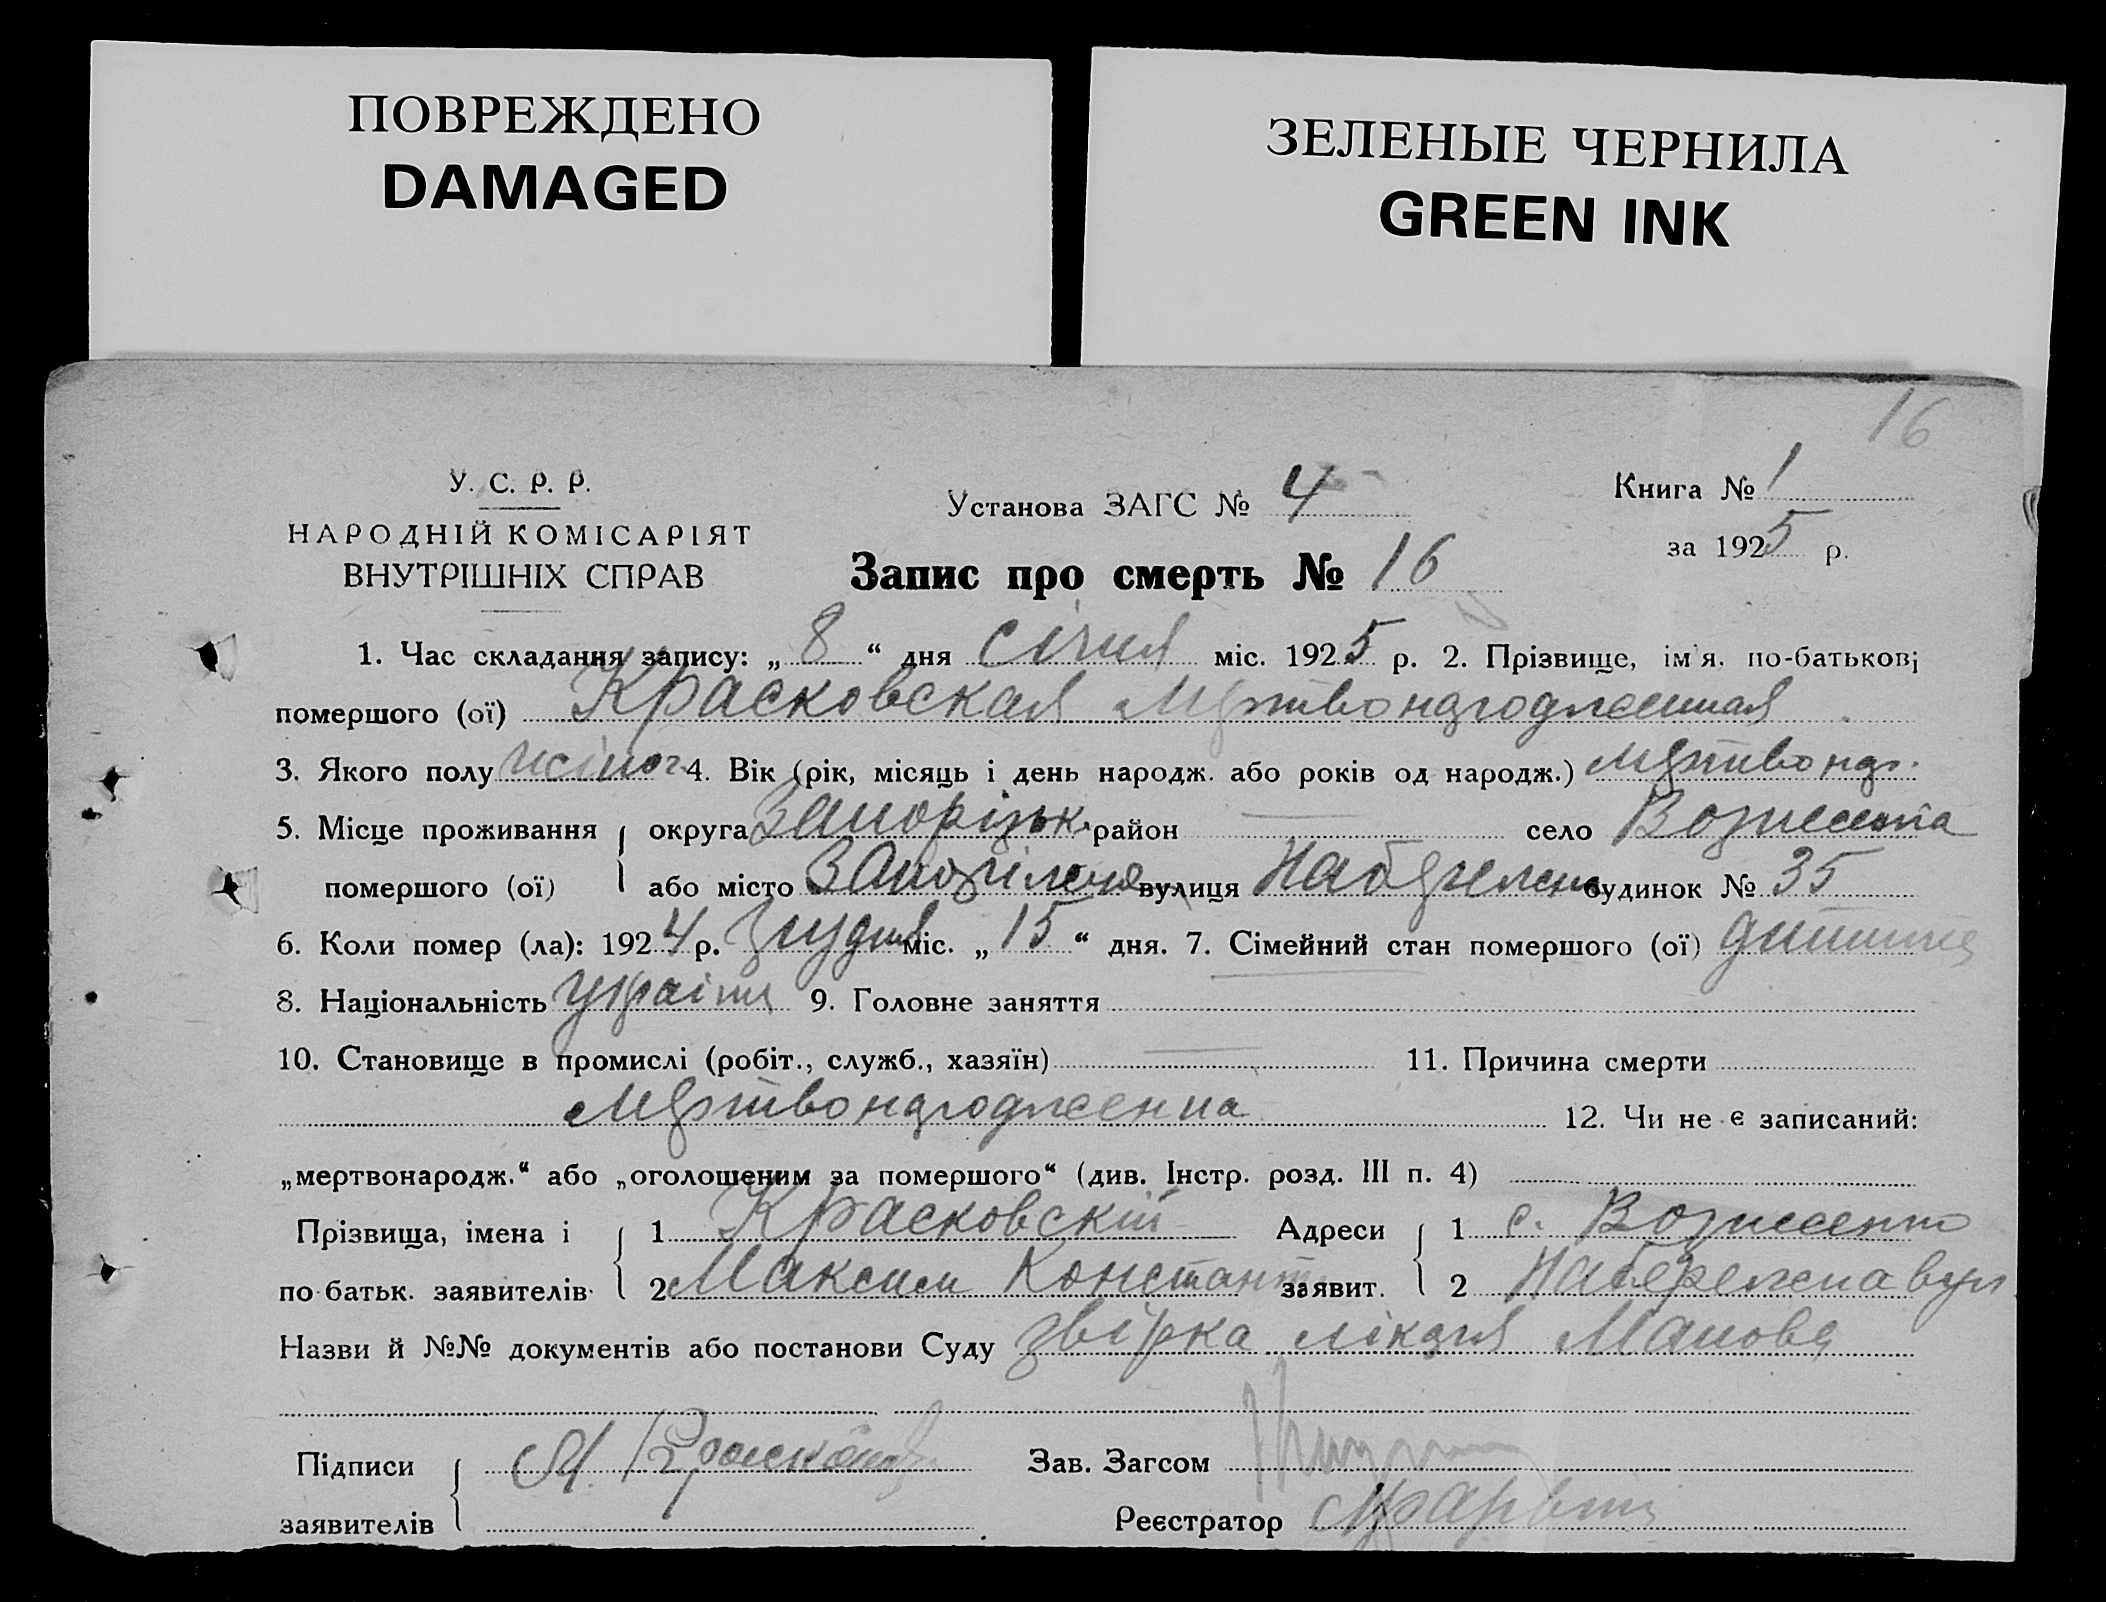 ПОВРЕЖДЕНО
DAMAGED
ЗЕЛЕНЫЕ ЧЕРНИЛА
GREEN INK
16
У. С. Р. Р.
НАРОДНІЙ КОМІСАРІЯТ
ВНУТРІШНІХ СПРАВ
Установа ЗАГС № 4
Книга № 1
за 1925 р.
Запис про смерть № 16
1. Час складання запису: „ 8 “ дня січня міс. 1925 р. 2. Прізвище, ім'я, по-батькові
помершого (ої) Красковская Мертвонародженная
3. Якого полу жіног 4. Вік (рік, місяць і день народж. або років од народж.) мертвонар.
5. Місце проживання округа Запорізьк. район — село Вознесенка
помершого (ої) або місто вулиця будинок № 35
6. Коли помер (ла): 1924 р. грудня міс. „ 15 “ дня. 7. Сімейний стан помершого (ої) дитина
8. Національність україн 9. Головне заняття —
10. Становище в промислі (робіт., служб., хазяїн) — 11. Причина смерти
мертвонародженна 12. Чи не є записаний:
„мертвонародж.“ або „оголошеним за помершого“ (див. Інстр. розд. III п. 4)
Прізвища, імена і 1 Красковскій Адреси 1 с. Вознесенко
по батьк. заявителів 2 Максим Констант заявит. 2 Набережна вул.
Назви й №№ документів або постанови Суду лікаря
Підписи М. Зав. Загсом
заявителів Реєстратор